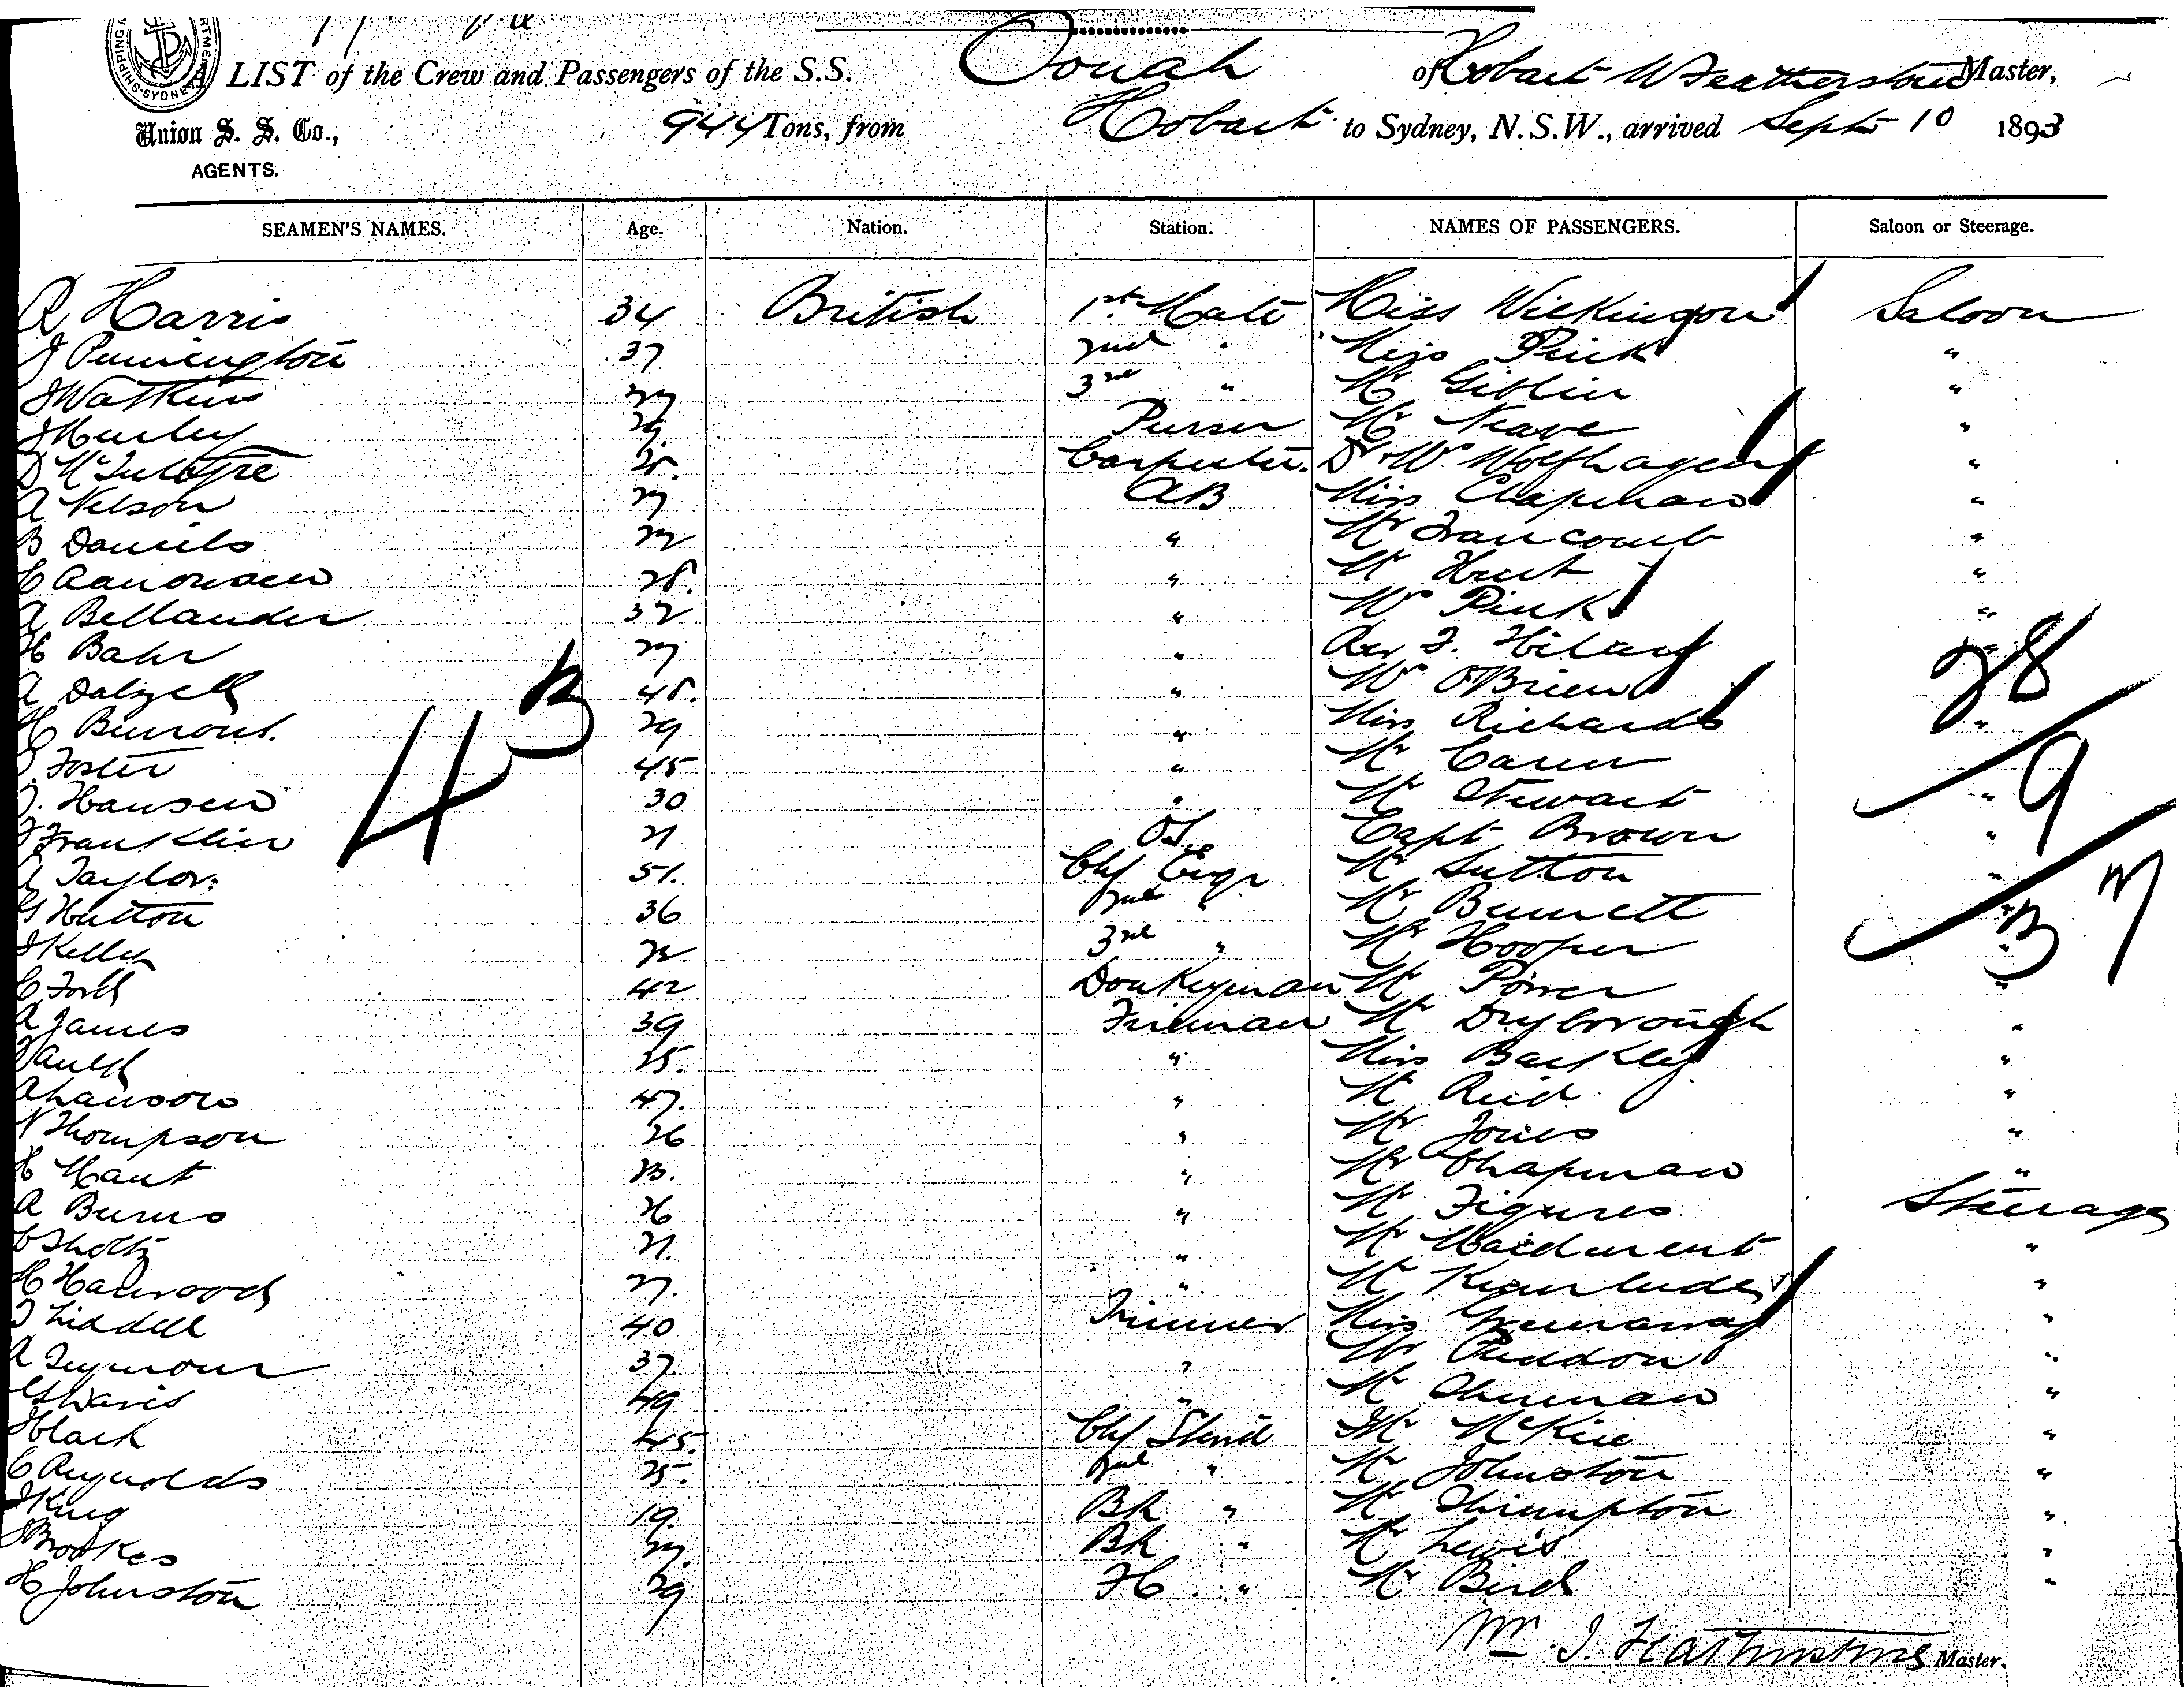 A LIST of the Crew and Passengers of the S.S. Oonah of Hobart W Featherstone Master,
Union S. S. Co., 944 Tons, from Hobart to Sydney, N.S.W., arrived Sept 10 1893
AGENTS.
SEAMEN'S NAMES. Age. Nation. Station. NAMES OF PASSENGERS. Saloon or Steerage.
A Harris 34 British 1st Mate Miss Wilkinson Saloon
J Pennington 37 2nd " Miss Pink "
J Watkins 3rd " Mr Giblin "
J Hurley Purser Mr Neave "
D McIntyre Carpenter. Dr W. Wolfhagen "
A Nelson 27 AB Miss Chapman "
B Daniels " Mr Francomb "
28. " Mr Hurt "
A Bellander 32 " Mr Pink "
H Bahr 27 " Rev F. "
A Dalzell 48. " Mr OBrien
H 29 " Miss Richards "
J. Foster 45 " Mr
J. Hansen 30 " Mr Stewart "
Franklin 21 OS Capt Brown "
A Taylor 51. Chf Engr Mr Sutton "
G Hutton 36 2nd " Mr Bennett "
J Kelly 3rd " Mr Hooper "
C Ford 42 Donkeyman Mr Power "
A James 39 Fireman Mr Dryborough "
25. " Miss Barkley "
47. " Mr Reid "
N Thompson 26 " Mr Jones "
23. " Mr Chapman "
A Burns 26 " Mr Figures Steerage
C Sholtz 21. " Mr Maidment "
H Harwood 27. " Mr "
T Liddell 40 Trimmer Miss Greenaway "
A Seymour 37. " Mr Puddon "
G Davis 49 " Mr "
45. Chf Stewd Mr McKie "
E Reynolds 25. 2nd " Mr Johnston "
J King 19. BR " Mr Shrimpton "
J Brookes BR " Mr Lewis "
H Johnston 29 FC " Mr Bird "
43
28
9
37
Wm J. Featherstone Master.